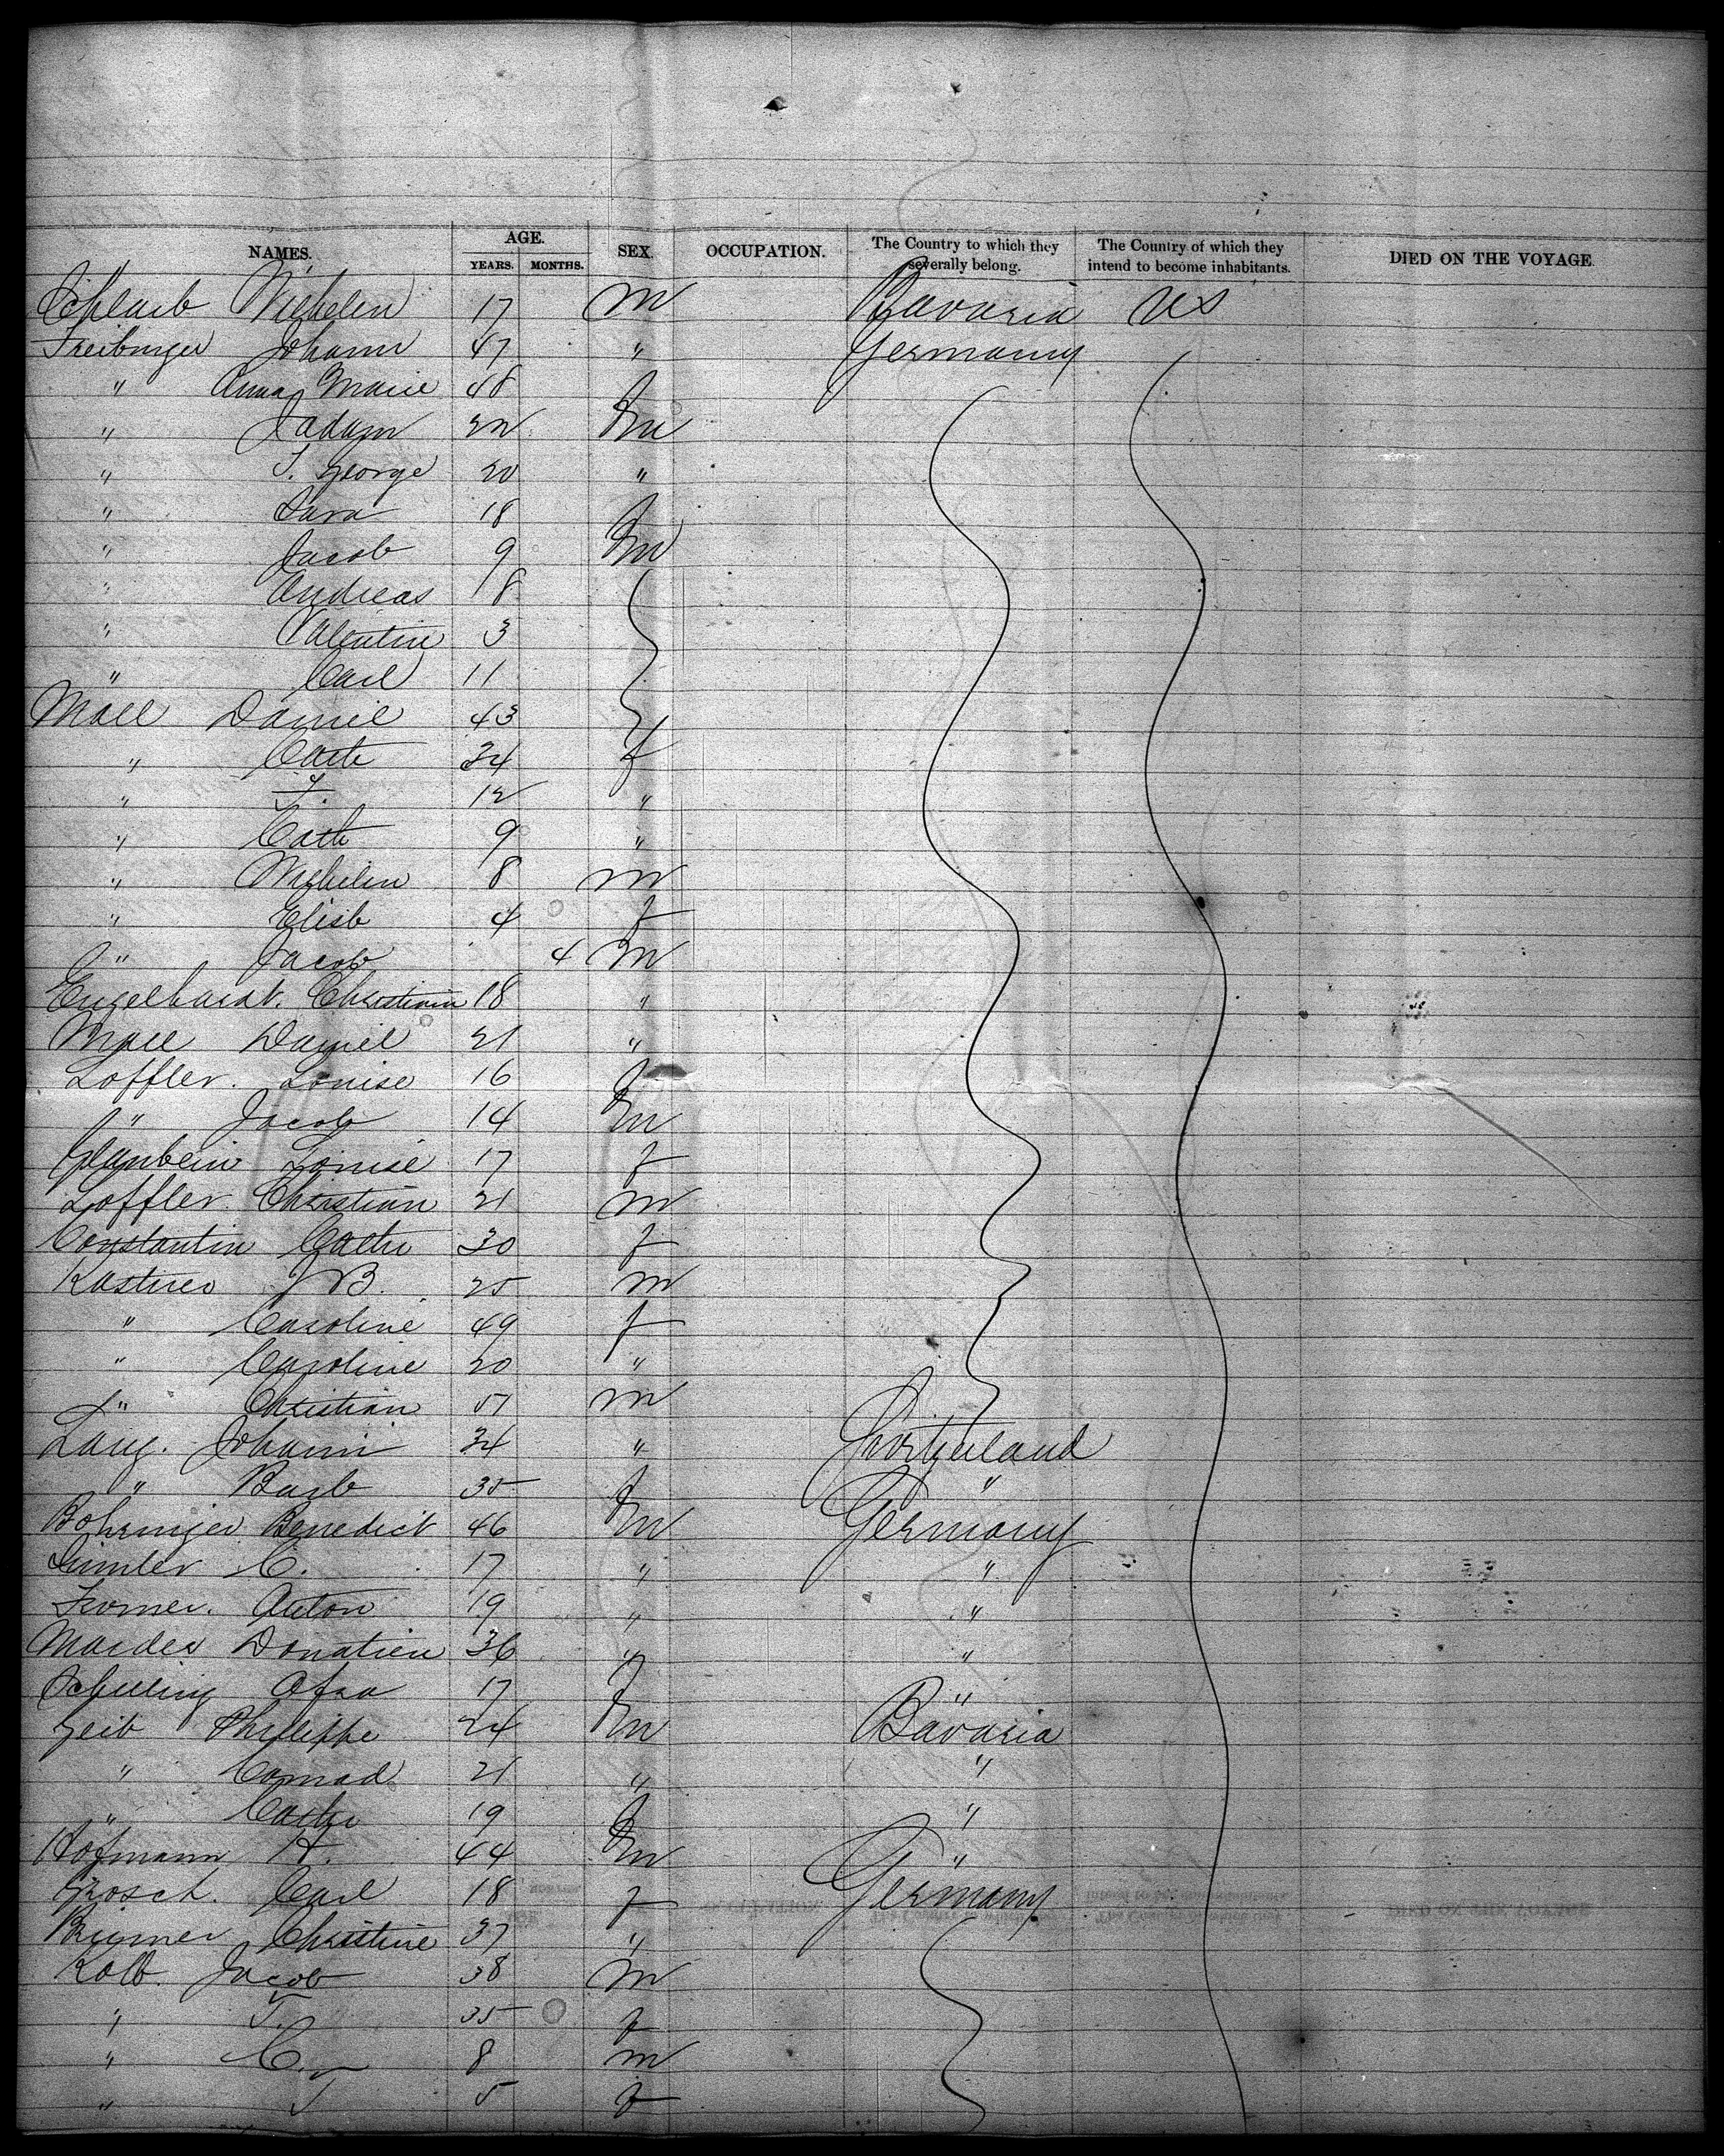 NAMES. AGE. YEARS. MONTHS. SEX. OCCUPATION. The Country to which they severally belong. The Country of which they intend to become inhabitants. DIED ON THE VOYAGE
Schlaib Wilhelm 17 M Bavaria US
Freiburger Johann 47 " Germany
" Anna Marie 48 f
" J adam 22 m
" J. George 20 "
" Sara 18 f
" Jacob 9 m
" Andreas 8
" Valentin 3
" Carl 11
Mall Daniel 43
" Cath 34 f
" F. 12 "
" Cath 9 "
" Wilhelm 8 m
" Elisb 4 f
" Jacob 4 m
Engelhardt. Christian 18 "
Mall Daniel 21 "
Loffler. Louise 16 f
" Jacob 14 m
Glanbein Louise 17 f
Loffler. Christian 21 m
Constantin Cathe 30 f
Kastner J B. 25 m
" Caroline 49 f
" Caroline 20 "
" Christian 51 m
Lang. Johann 34 " Switzerland
" Barb 35 f "
Bohringer Benedict 46 m Germany
C. 17 " "
Anton 19 " "
Donatien 36 " "
Schilling Afra 17 f "
Geib Philippe 24 m Bavaria
" Conrad 21 " "
" Cathe 19 f "
Hofmann H. 44 m "
Grosch. Carl 18 f Germany
Christine 37 "
Kolb. Jacob 38 m
" F. 35 f
" C. 8 m
" J 5 f